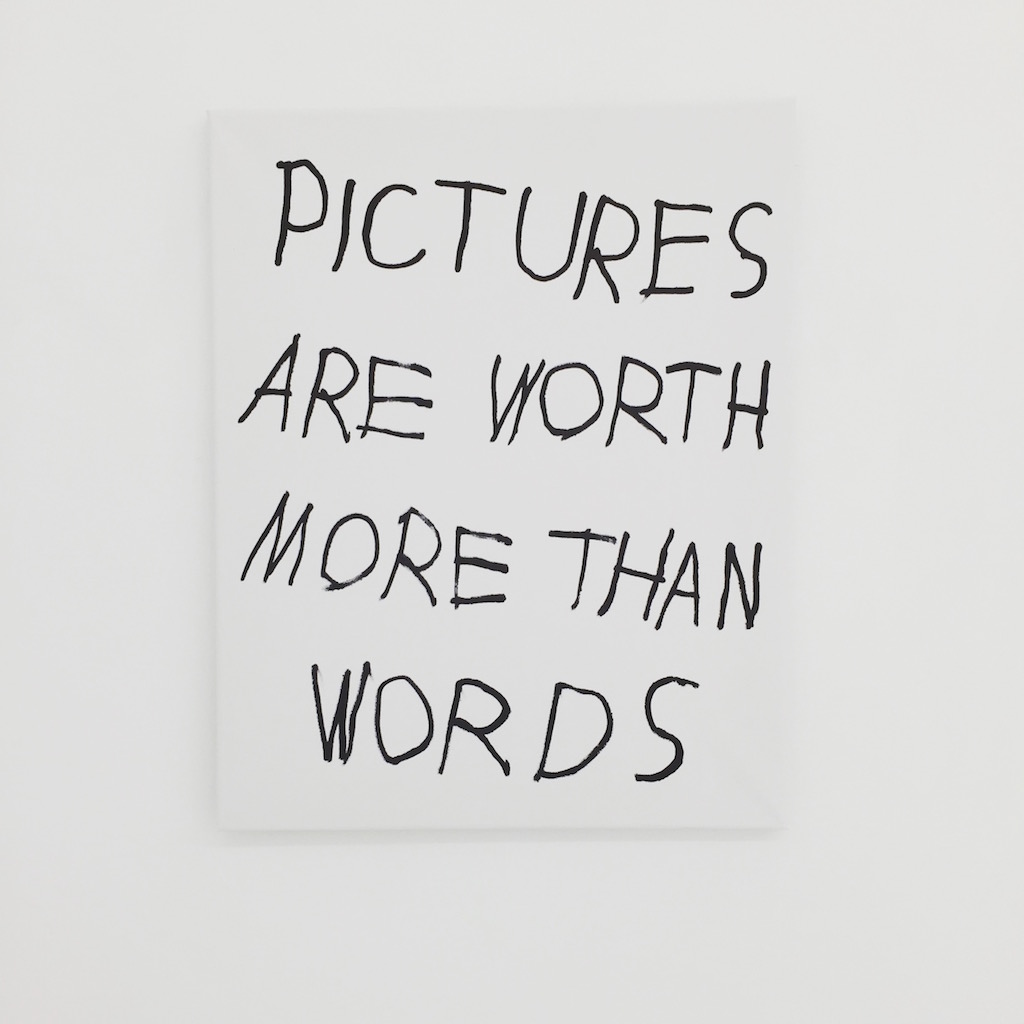 PICTURES
ARE WORTH
MORE THAN
WORDS